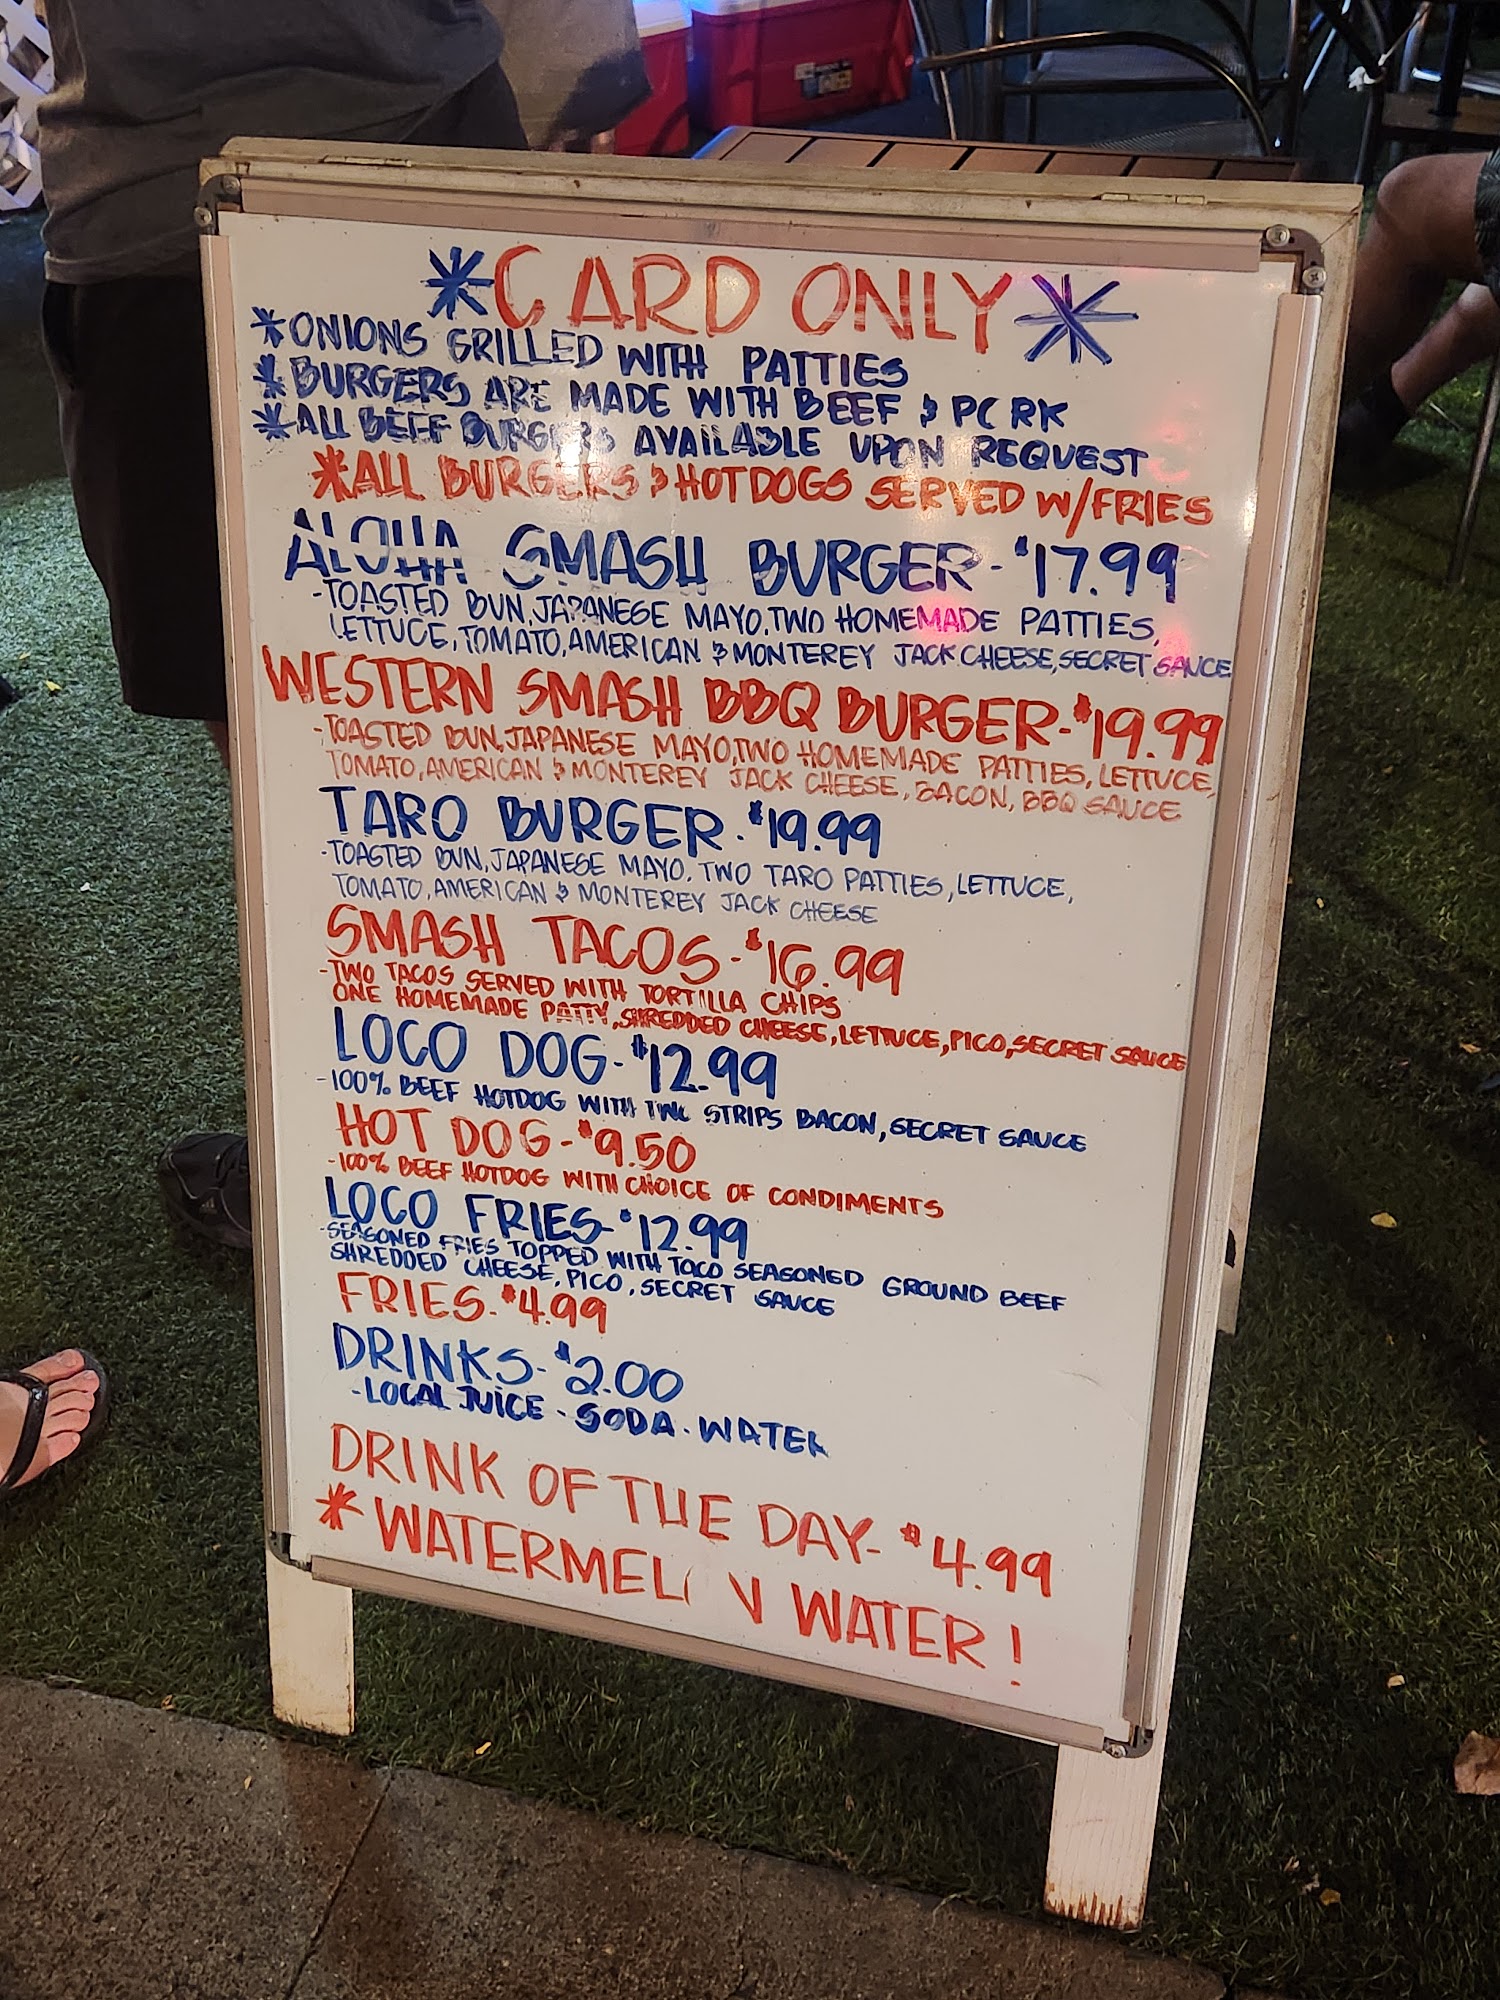 *CARD ONLY*
*ONIONS GRILLED WITH PATTIES
*BURGERS ARE MADE WITH BEEF & PORK
*ALL BEEF BURGERS AVAILABLE UPON REQUEST
*ALL BURGERS & HOTDOGS SERVED W/FRIES
ALOHA SMASH BURGER - $17.99
- TOASTED BUN, JAPANESE MAYO, TWO HOMEMADE PATTIES,
LETTUCE, TOMATO, AMERICAN & MONTEREY JACK CHEESE, SECRET SAUCE
WESTERN SMASH BBQ BURGER - $19.99
- TOASTED BUN, JAPANESE MAYO, TWO HOMEMADE PATTIES, LETTUCE,
TOMATO, AMERICAN & MONTEREY JACK CHEESE, BACON, BBQ SAUCE
TARO BURGER - $19.99
- TOASTED BUN, JAPANESE MAYO, TWO TARO PATTIES, LETTUCE,
TOMATO, AMERICAN & MONTEREY JACK CHEESE
SMASH TACOS - $16.99
- TWO TACOS SERVED WITH TORTILLA CHIPS
ONE HOMEMADE PATTY, SHREDDED CHEESE, LETTUCE, PICO, SECRET SAUCE
LOCO DOG - $12.99
- 100% BEEF HOTDOG WITH TWO STRIPS BACON, SECRET SAUCE
HOT DOG - $9.50
- 100% BEEF HOTDOG WITH CHOICE OF CONDIMENTS
LOCO FRIES - $12.99
- SEASONED FRIES TOPPED WITH TACO SEASONED GROUND BEEF
SHREDDED CHEESE, PICO, SECRET SAUCE
FRIES - $4.99
DRINKS - $2.00
- LOCAL JUICE - SODA - WATER
DRINK OF THE DAY - $4.99
* WATERMELON WATER!